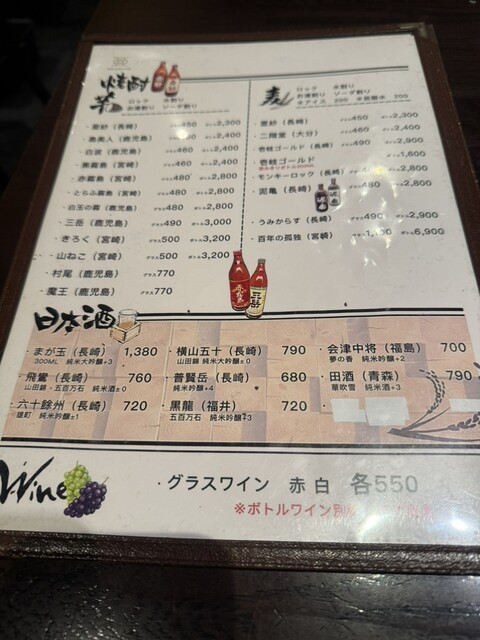 焼酎
芋
ロック 水割り
お湯割り ソーダ割り
・黒紗（長崎） グラス450 ボトル2,300
・島美人（鹿児島） グラス460 ボトル2,400
・白波（鹿児島） グラス460 ボトル2,400
・黒霧島（宮崎） グラス460 ボトル2,400
・赤霧島（宮崎） グラス480 ボトル2,800
・とらふ霧島（宮崎） グラス480 ボトル2,800
・白玉の露（鹿児島） グラス480 ボトル2,800
・三岳（鹿児島） グラス490 ボトル3,000
・きろく（宮崎） グラス500 ボトル3,200
・山ねこ（宮崎） グラス500 ボトル3,200
・村尾（鹿児島） グラス770
・魔王（鹿児島） グラス770
麦
ロック 水割り
お湯割り ソーダ割り
※アイス 200 ※炭酸水 200
・黒紗（長崎） グラス450 ボトル2,300
・二階堂（大分） グラス460 ボトル2,400
・壱岐ゴールド（長崎） グラス490 ボトル2,900
・壱岐ゴールド 1,600
・モンキーロック（長崎） グラス480 ボトル2,800
・泥亀（長崎） グラス480 ボトル2,800
・うみからす（長崎） グラス490 ボトル2,900
・百年の孤独（宮崎） ボトル6,900
日本酒
・まが玉（長崎） 1,380
300ML 純米大吟醸+3
・飛鸞（長崎） 760
山田錦・五百万石 純米酒±0
・六十餘州（長崎） 720
雄町 純米吟醸±1
・横山五十（長崎） 790
山田錦 純米大吟醸+0
・普賢岳（長崎） 680
純米吟醸+4
・黒龍（福井） 720
五百万石 純米吟醸+3
・会津中将（福島） 700
夢の香 純米吟醸+2
・田酒（青森） 790
華吹雪 純米酒+3
Wine
・グラスワイン 赤 白 各550
※ボトルワイン別